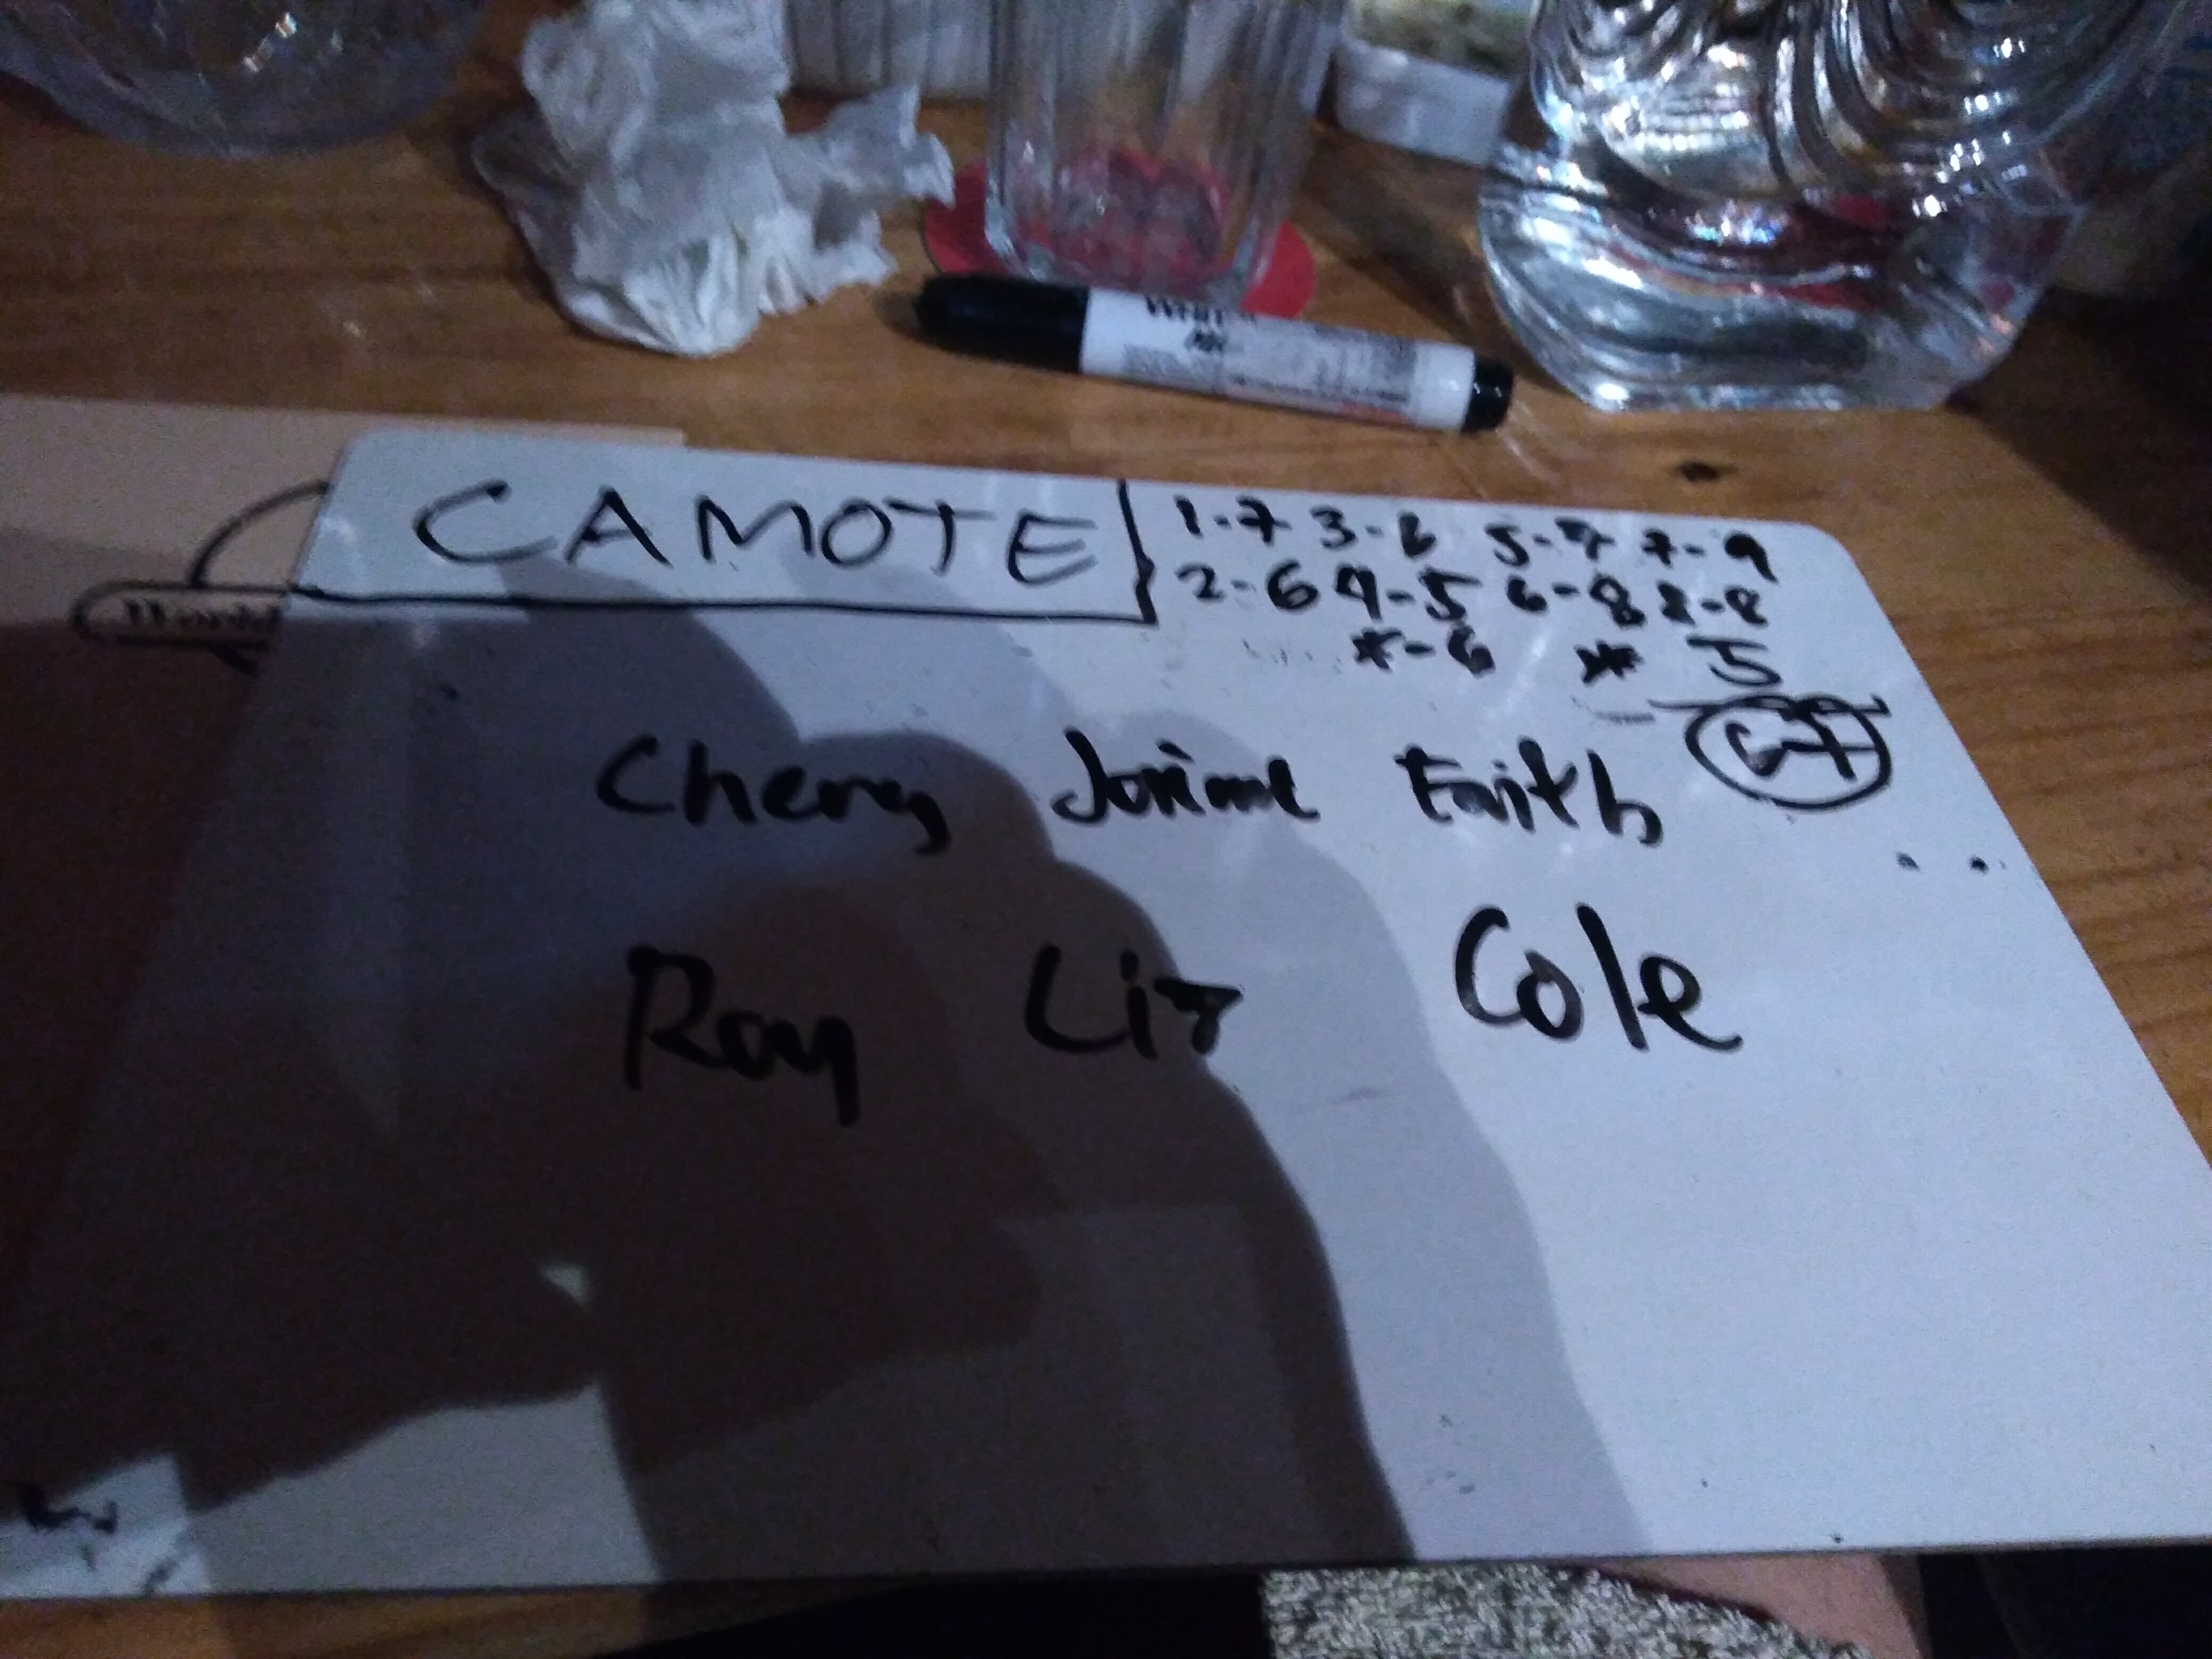 CAMOTE
1-7 3-6 5-7 7-9
2-6 4-5 6-8 8-8
*-6 *
Cherry Faith
Ray Liz Cole